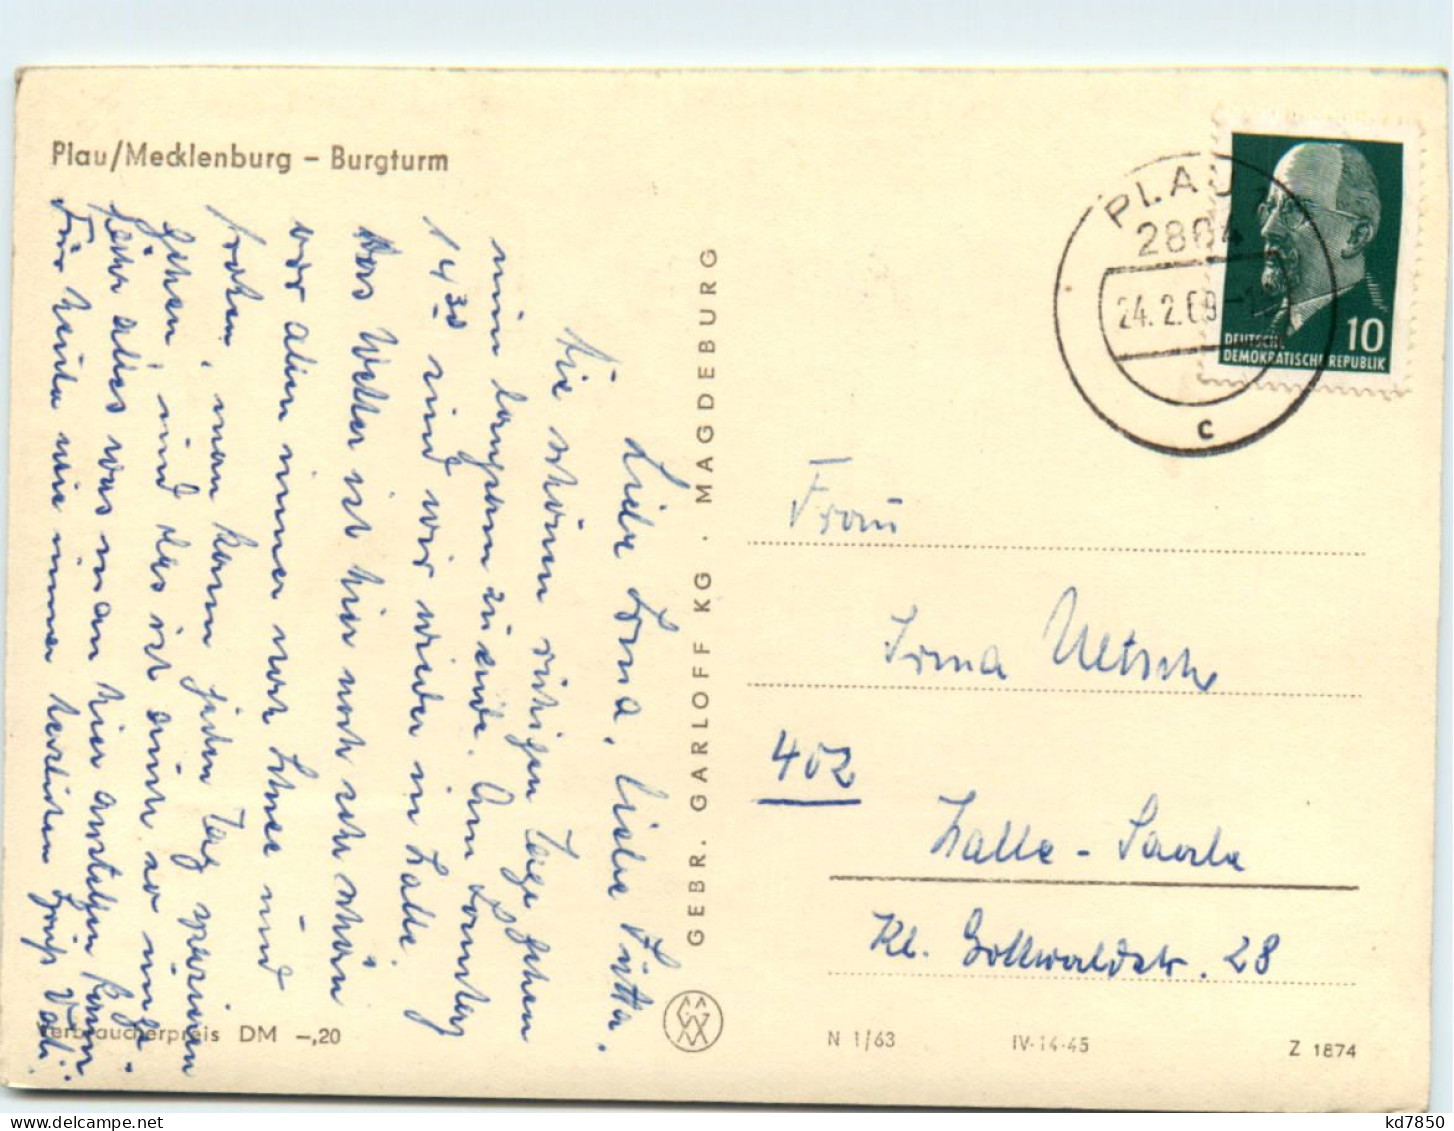 Plau/Mecklenburg – Burgturm
Liebe Erna, liebe Jutta.
Die schönen ruhigen Tage gehen
nun langsam zu ende. Am Sonntag
14³⁰ sind wir wieder in Halle.
Das Wetter ist hier noch sehr schön
vor allen immer noch Schnee und
, man kann jeden Tag spazieren
gehen, und das ist auch so ungefähr
alles was man hier anstellen kann.
Für heute wie immer herzlichen Gruß
Verbraucherpreis DM –,20
GEBR. GARLOFF KG · MAGDEBURG
PLAU
2864
24.2.69
c
10
DEUTSCHE
DEMOKRATISCHE REPUBLIK
Frau
Irma
402
Halle-Saale
Kl. Gottwaldstr. 28
N 1/63
IV-14-45
Z 1874
kd7850